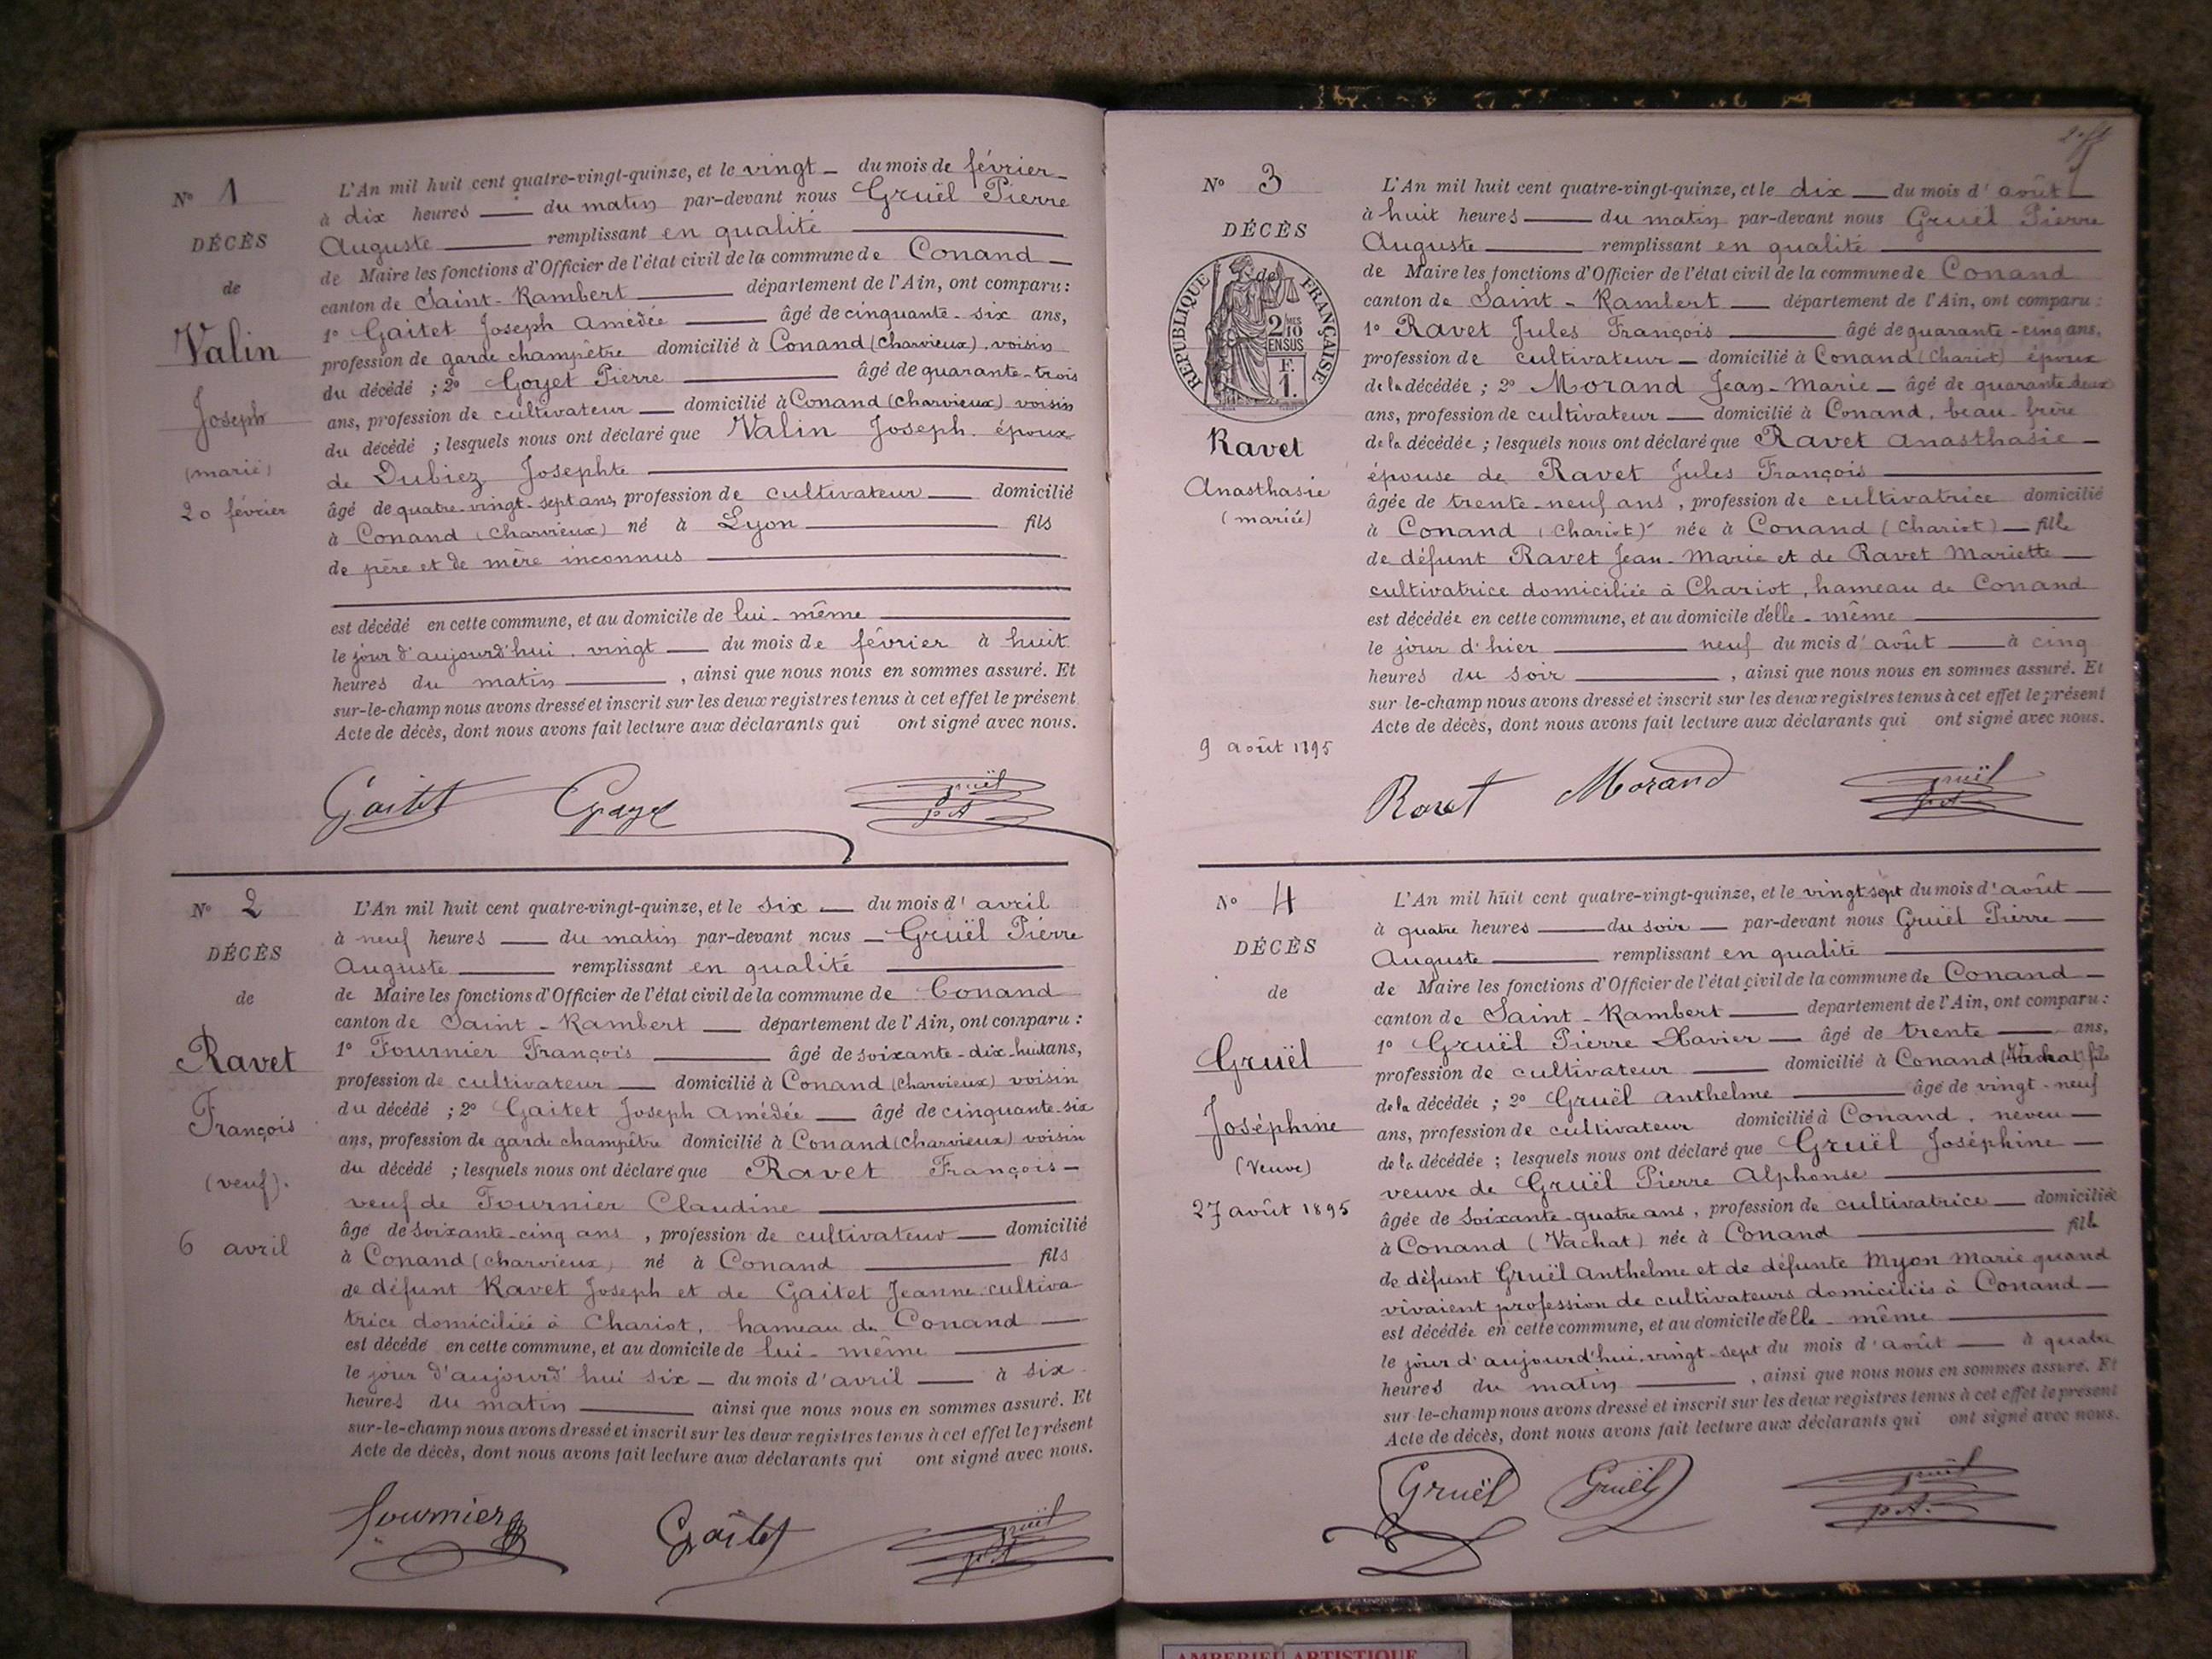 Nº 1
DÉCÈS
de
Valin
Joseph
(marié)
20 février
L'An mil huit cent quatre-vingt-quinze, et le vingt du mois de février
à dix heures du matin par-devant nous Gruël Pierre
Auguste remplissant en qualité
de Maire les fonctions d'Officier de l'état civil de la commune de Conand
canton de Saint-Rambert département de l'Ain, ont comparu :
1º Gaitet Joseph Amédée âgé de cinquante-six ans,
profession de garde champêtre domicilié à Conand (Charvieux), voisin
du décédé ; 2º Goyet Pierre âgé de quarante-trois
ans, profession de cultivateur domicilié à Conand (Charvieux) voisin
du décédé ; lesquels nous ont déclaré que Valin Joseph, époux
de Dubiez Josephte
âgé de quatre-vingt-sept ans, profession de cultivateur domicilié
à Conand (Charvieux) né à Lyon fils
de père et de mère inconnus
est décédé en cette commune, et au domicile de lui-même
le jour d'aujourd'hui, vingt du mois de février à huit
heures du matin , ainsi que nous nous en sommes assuré. Et
sur-le-champ nous avons dressé et inscrit sur les deux registres tenus à cet effet le présent
Acte de décès, dont nous avons fait lecture aux déclarants qui ont signé avec nous.
Gaitet Goyet Gruël
p A
Nº 2
DÉCÈS
de
Ravet
François
(veuf).
6 avril
L'An mil huit cent quatre-vingt-quinze, et le six du mois d'avril
à neuf heures du matin par-devant nous Gruël Pierre
Auguste remplissant en qualité
de Maire les fonctions d'Officier de l'état civil de la commune de Conand
canton de Saint-Rambert département de l'Ain, ont comparu :
1º Fournier François âgé de soixante-dix-huit ans,
profession de cultivateur domicilié à Conand (Charvieux) voisin
du décédé ; 2º Gaitet Joseph Amédée âgé de cinquante-six
ans, profession de garde champêtre domicilié à Conand (Charvieux) voisin
du décédé ; lesquels nous ont déclaré que Ravet François
veuf de Fournier Claudine
âgé de soixante-cinq ans , profession de cultivateur domicilié
à Conand (Charvieux) né à Conand fils
de défunt Ravet Joseph et de Gaitet Jeanne cultiva
trice domiciliée à Chariot, hameau de Conand
est décédé en cette commune, et au domicile de lui-même
le jour d'aujourd'hui six du mois d'avril à six
heures du matin ainsi que nous nous en sommes assuré. Et
sur-le-champ nous avons dressé et inscrit sur les deux registres tenus à cet effet le présent
Acte de décès, dont nous avons fait lecture aux déclarants qui ont signé avec nous.
Fournier Gaitet Gruël
p A
Nº 3
DÉCÈS
de
RÉPUBLIQUE FRANÇAISE
2 MES
10
EN SUS
F.
1.
Ravet
Anasthasie
(mariée)
9 août 1895
L'An mil huit cent quatre-vingt-quinze, et le dix du mois d'août
à huit heures du matin par-devant nous Gruël Pierre
Auguste remplissant en qualité
de Maire les fonctions d'Officier de l'état civil de la commune de Conand
canton de Saint-Rambert département de l'Ain, ont comparu :
1º Ravet Jules François âgé de quarante-cinq ans,
profession de cultivateur domicilié à Conand (Chariot) époux
de la décédée ; 2º Morand Jean-Marie âgé de quarante deux
ans, profession de cultivateur domicilié à Conand, beau-frère
de la décédée ; lesquels nous ont déclaré que Ravet Anasthasie
épouse de Ravet Jules François
âgée de trente-neuf ans , profession de cultivatrice domicilié
à Conand (Chariot) née à Conand (Chariot) fille
de défunt Ravet Jean-Marie et de Ravet Mariette
cultivatrice domiciliée à Chariot, hameau de Conand
est décédée en cette commune, et au domicile d'elle-même
le jour d'hier neuf du mois d'août à cinq
heures du soir , ainsi que nous nous en sommes assuré. Et
sur-le-champ nous avons dressé et inscrit sur les deux registres tenus à cet effet le présent
Acte de décès, dont nous avons fait lecture aux déclarants qui ont signé avec nous.
Ravet Morand Gruël
p A
Nº 4
DÉCÈS
de
Gruël
Joséphine
(Veuve)
27 août 1895
L'An mil huit cent quatre-vingt-quinze, et le vingt sept du mois d'août
à quatre heures du soir par-devant nous Gruël Pierre
Auguste remplissant en qualité
de Maire les fonctions d'Officier de l'état civil de la commune de Conand
canton de Saint-Rambert département de l'Ain, ont comparu :
1º Gruël Pierre Xavier âgé de trente ans,
profession de cultivateur domicilié à Conand (Vachat) fils
de la décédée ; 2º Gruël Anthelme âgé de vingt-neuf
ans, profession de cultivateur domicilié à Conand, neveu
de la décédée ; lesquels nous ont déclaré que Gruël Joséphine
veuve de Gruël Pierre Alphonse
âgée de soixante-quatre ans, profession de cultivatrice domiciliée
à Conand (Vachat) née à Conand fille
de défunt Gruël Anthelme et de défunte Myon Marie quand
vivaient profession de cultivateurs domiciliés à Conand
est décédée en cette commune, et au domicile d'elle-même
le jour d'aujourd'hui, vingt-sept du mois d'août à quatre
heures du matin , ainsi que nous nous en sommes assuré. Et
sur-le-champ nous avons dressé et inscrit sur les deux registres tenus à cet effet le présent
Acte de décès, dont nous avons fait lecture aux déclarants qui ont signé avec nous.
Gruël Gruël Gruël
p. A.
AMBERIEU ARTISTIQUE